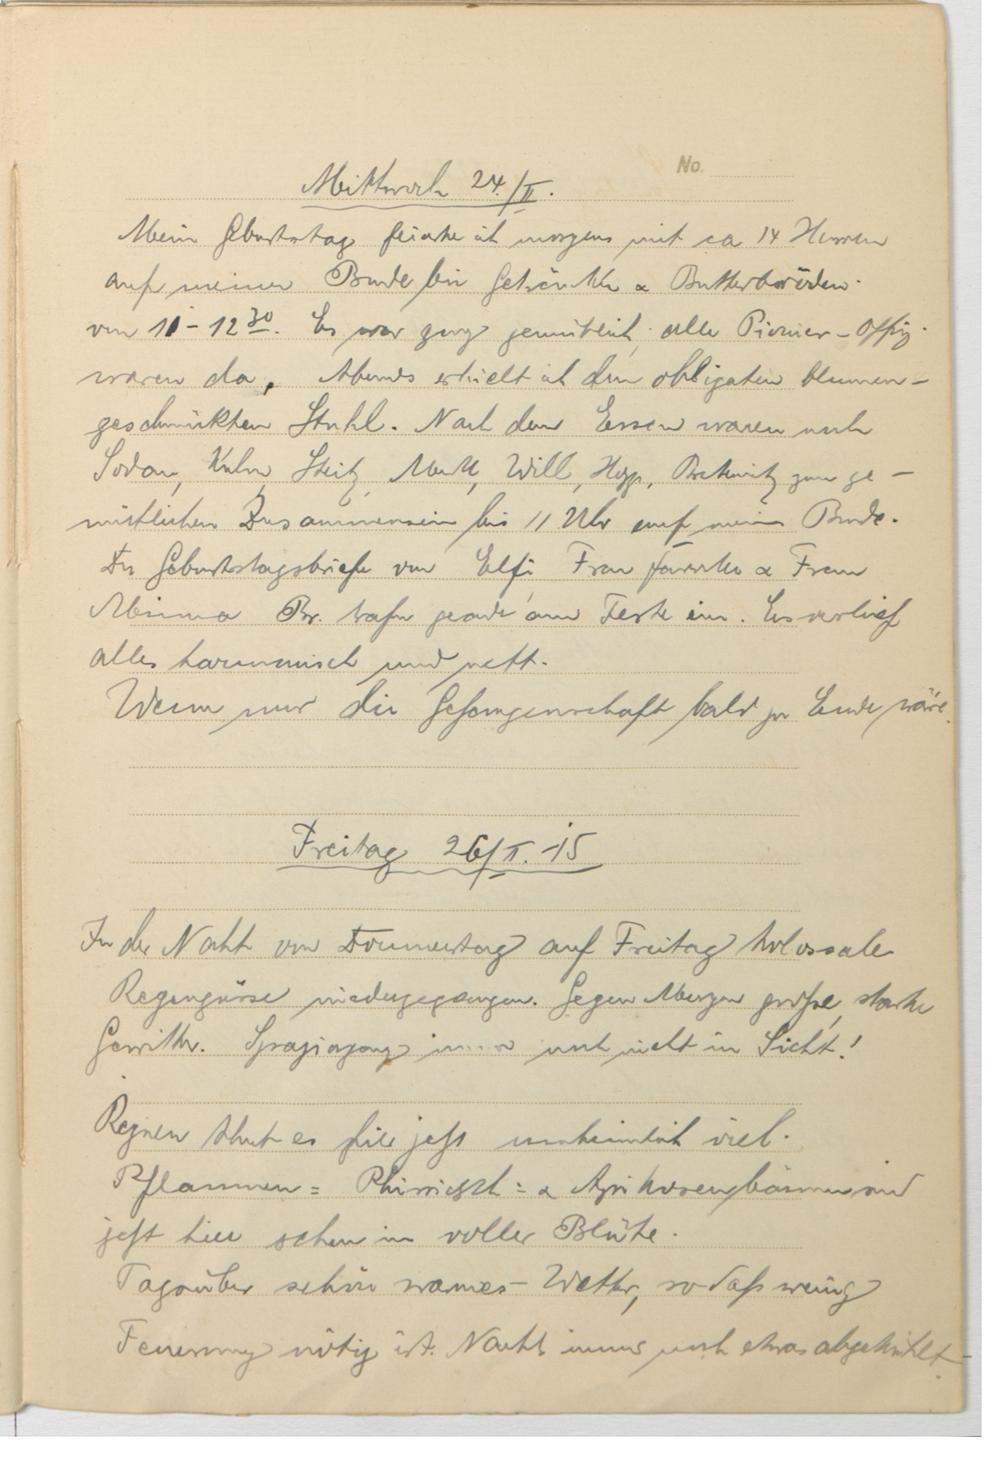 No.
Mittwoch 24./II.
Mein Geburtstag feierte ich morgens mit ca 14 Herren
auf meiner Bude bei Getränken & Butterbröden.
von 11 - 12 30. Es war ganz gemütlich, alle Pionier-Offiz.
waren da. Abends erhielt ich den obligaten blumen-
geschmückten Stuhl. Nach dem Essen waren noch
Sodan, Kuhn, Steitz, Will, zum ge-
mütlichen Zusammensein bis 11 Uhr auf meiner Bude.
Die Geburtstagsbriefe von Elfi Frau & Frau
Minna Br. trafen gerade am Feste ein. Es verlief
alles harmonisch und nett.
Wenn nur die Gefangenschaft bald zu Ende wäre.
Freitag 26/II.-15
In der Nacht von Donnerstag auf Freitag kolossale
Regengüsse niedergegangen. Gegen Morgen große, starke
Gewitter. Spaziergang immer noch nicht in Sicht!
Regnen thut es hier jetzt unheimlich viel.
Pflaumen= Phirsisch= & Aprikosenbäume sind
jetzt hier schon in voller Blüte.
Tagsüber schön warmes Wetter, so daß wenig
Feuerung nötig ist. Nachts immer noch etwas abgekühlt.